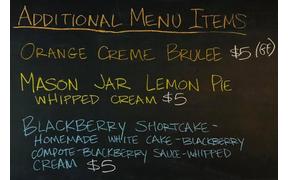 ADDITIONAL MENU ITEMS
ORANGE CREME BRULEE $5 (GF)
MASON JAR LEMON PIE
WHIPPED CREAM $5
BLACKBERRY SHORTCAKE-
HOMEMADE WHITE CAKE-BLACKBERRY
COMPOTE-BLACKBERRY SAUCE-WHIPPED
CREAM $5